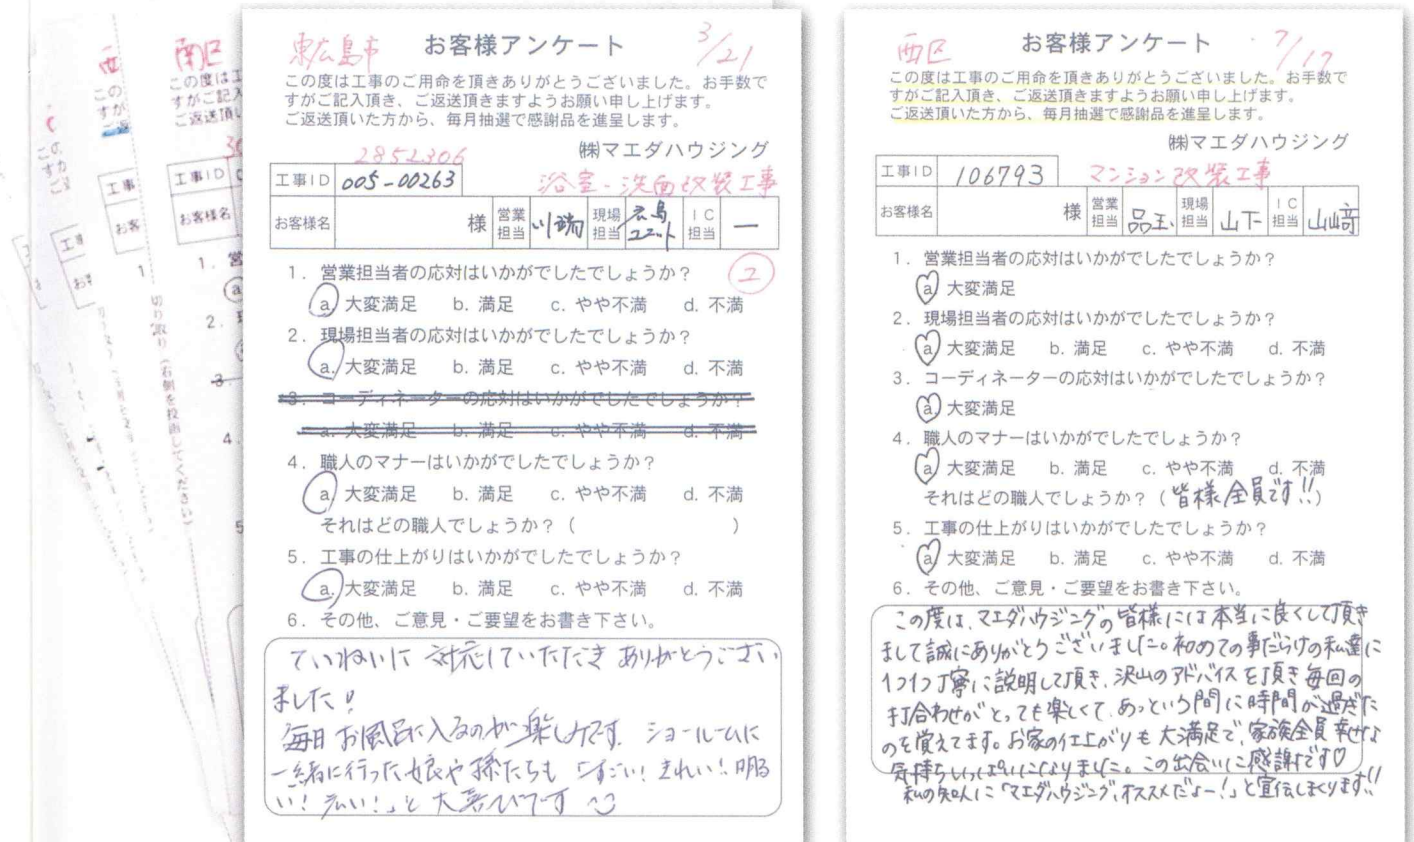 東広島市 お客様アンケート 3/21
この度は工事のご用命を頂きありがとうございました。お手数で
すがご記入頂き、ご返送頂きますようお願い申し上げます。
ご返送頂いた方から、毎月抽選で感謝品を進呈します。
㈱マエダハウジング
2852306
工事ID 005-00263 浴室・洗面改装工事
お客様名 様 営業担当 川端 現場担当 広島ユニット IC担当 ー
1. 営業担当者の応対はいかがでしたでしょうか? 2
a. 大変満足 b. 満足 c. やや不満 d. 不満
2. 現場担当者の応対はいかがでしたでしょうか?
a. 大変満足 b. 満足 c. やや不満 d. 不満
3. コーディネーターの応対はいかがでしたでしょうか?
a. 大変満足 b. 満足 c. やや不満 d. 不満
4. 職人のマナーはいかがでしたでしょうか?
a. 大変満足 b. 満足 c. やや不満 d. 不満
それはどの職人でしょうか?( )
5. 工事の仕上がりはいかがでしたでしょうか?
a. 大変満足 b. 満足 c. やや不満 d. 不満
6. その他、ご意見・ご要望をお書き下さい。
ていねいに対応していただきありがとうござい
ました!
毎日お風呂に入るのが楽しみです。ショールームに
一緒に行った娘や孫たちも「すごい!きれい!明る
い!広い!」と大喜びです
西区 お客様アンケート 7/17
この度は工事のご用命を頂きありがとうございました。お手数で
すがご記入頂き、ご返送頂きますようお願い申し上げます。
ご返送頂いた方から、毎月抽選で感謝品を進呈します。
㈱マエダハウジング
工事ID 106793 マンション改装工事
お客様名 様 営業担当 品玉 現場担当 山下 IC担当 山﨑
1. 営業担当者の応対はいかがでしたでしょうか?
a. 大変満足
2. 現場担当者の応対はいかがでしたでしょうか?
a. 大変満足 b. 満足 c. やや不満 d. 不満
3. コーディネーターの応対はいかがでしたでしょうか?
a. 大変満足
4. 職人のマナーはいかがでしたでしょうか?
a. 大変満足 b. 満足 c. やや不満 d. 不満
それはどの職人でしょうか?(皆様全員です!!)
5. 工事の仕上がりはいかがでしたでしょうか?
a. 大変満足 b. 満足 c. やや不満 d. 不満
6. その他、ご意見・ご要望をお書き下さい。
この度は、マエダハウジングの皆様には本当に良くして頂き
まして誠にありがとうございました。初めての事だらけの私達に
1つ1つ丁寧に説明して頂き、沢山のアドバイスを頂き毎回の
打合わせがとっても楽しくて、あっという間に時間が過ぎた
のを覚えてます。お家の仕上がりも大満足で、家族全員幸せな
気持ちいっぱいになりました。この出会いに感謝です♡
私の知人に「マエダハウジング、オススメだよー!」と宣伝しまくります!!
南区
この度は工
すがご記入
ご返送頂い
工事ID
お客様名
切り取り(右側を投函してください)